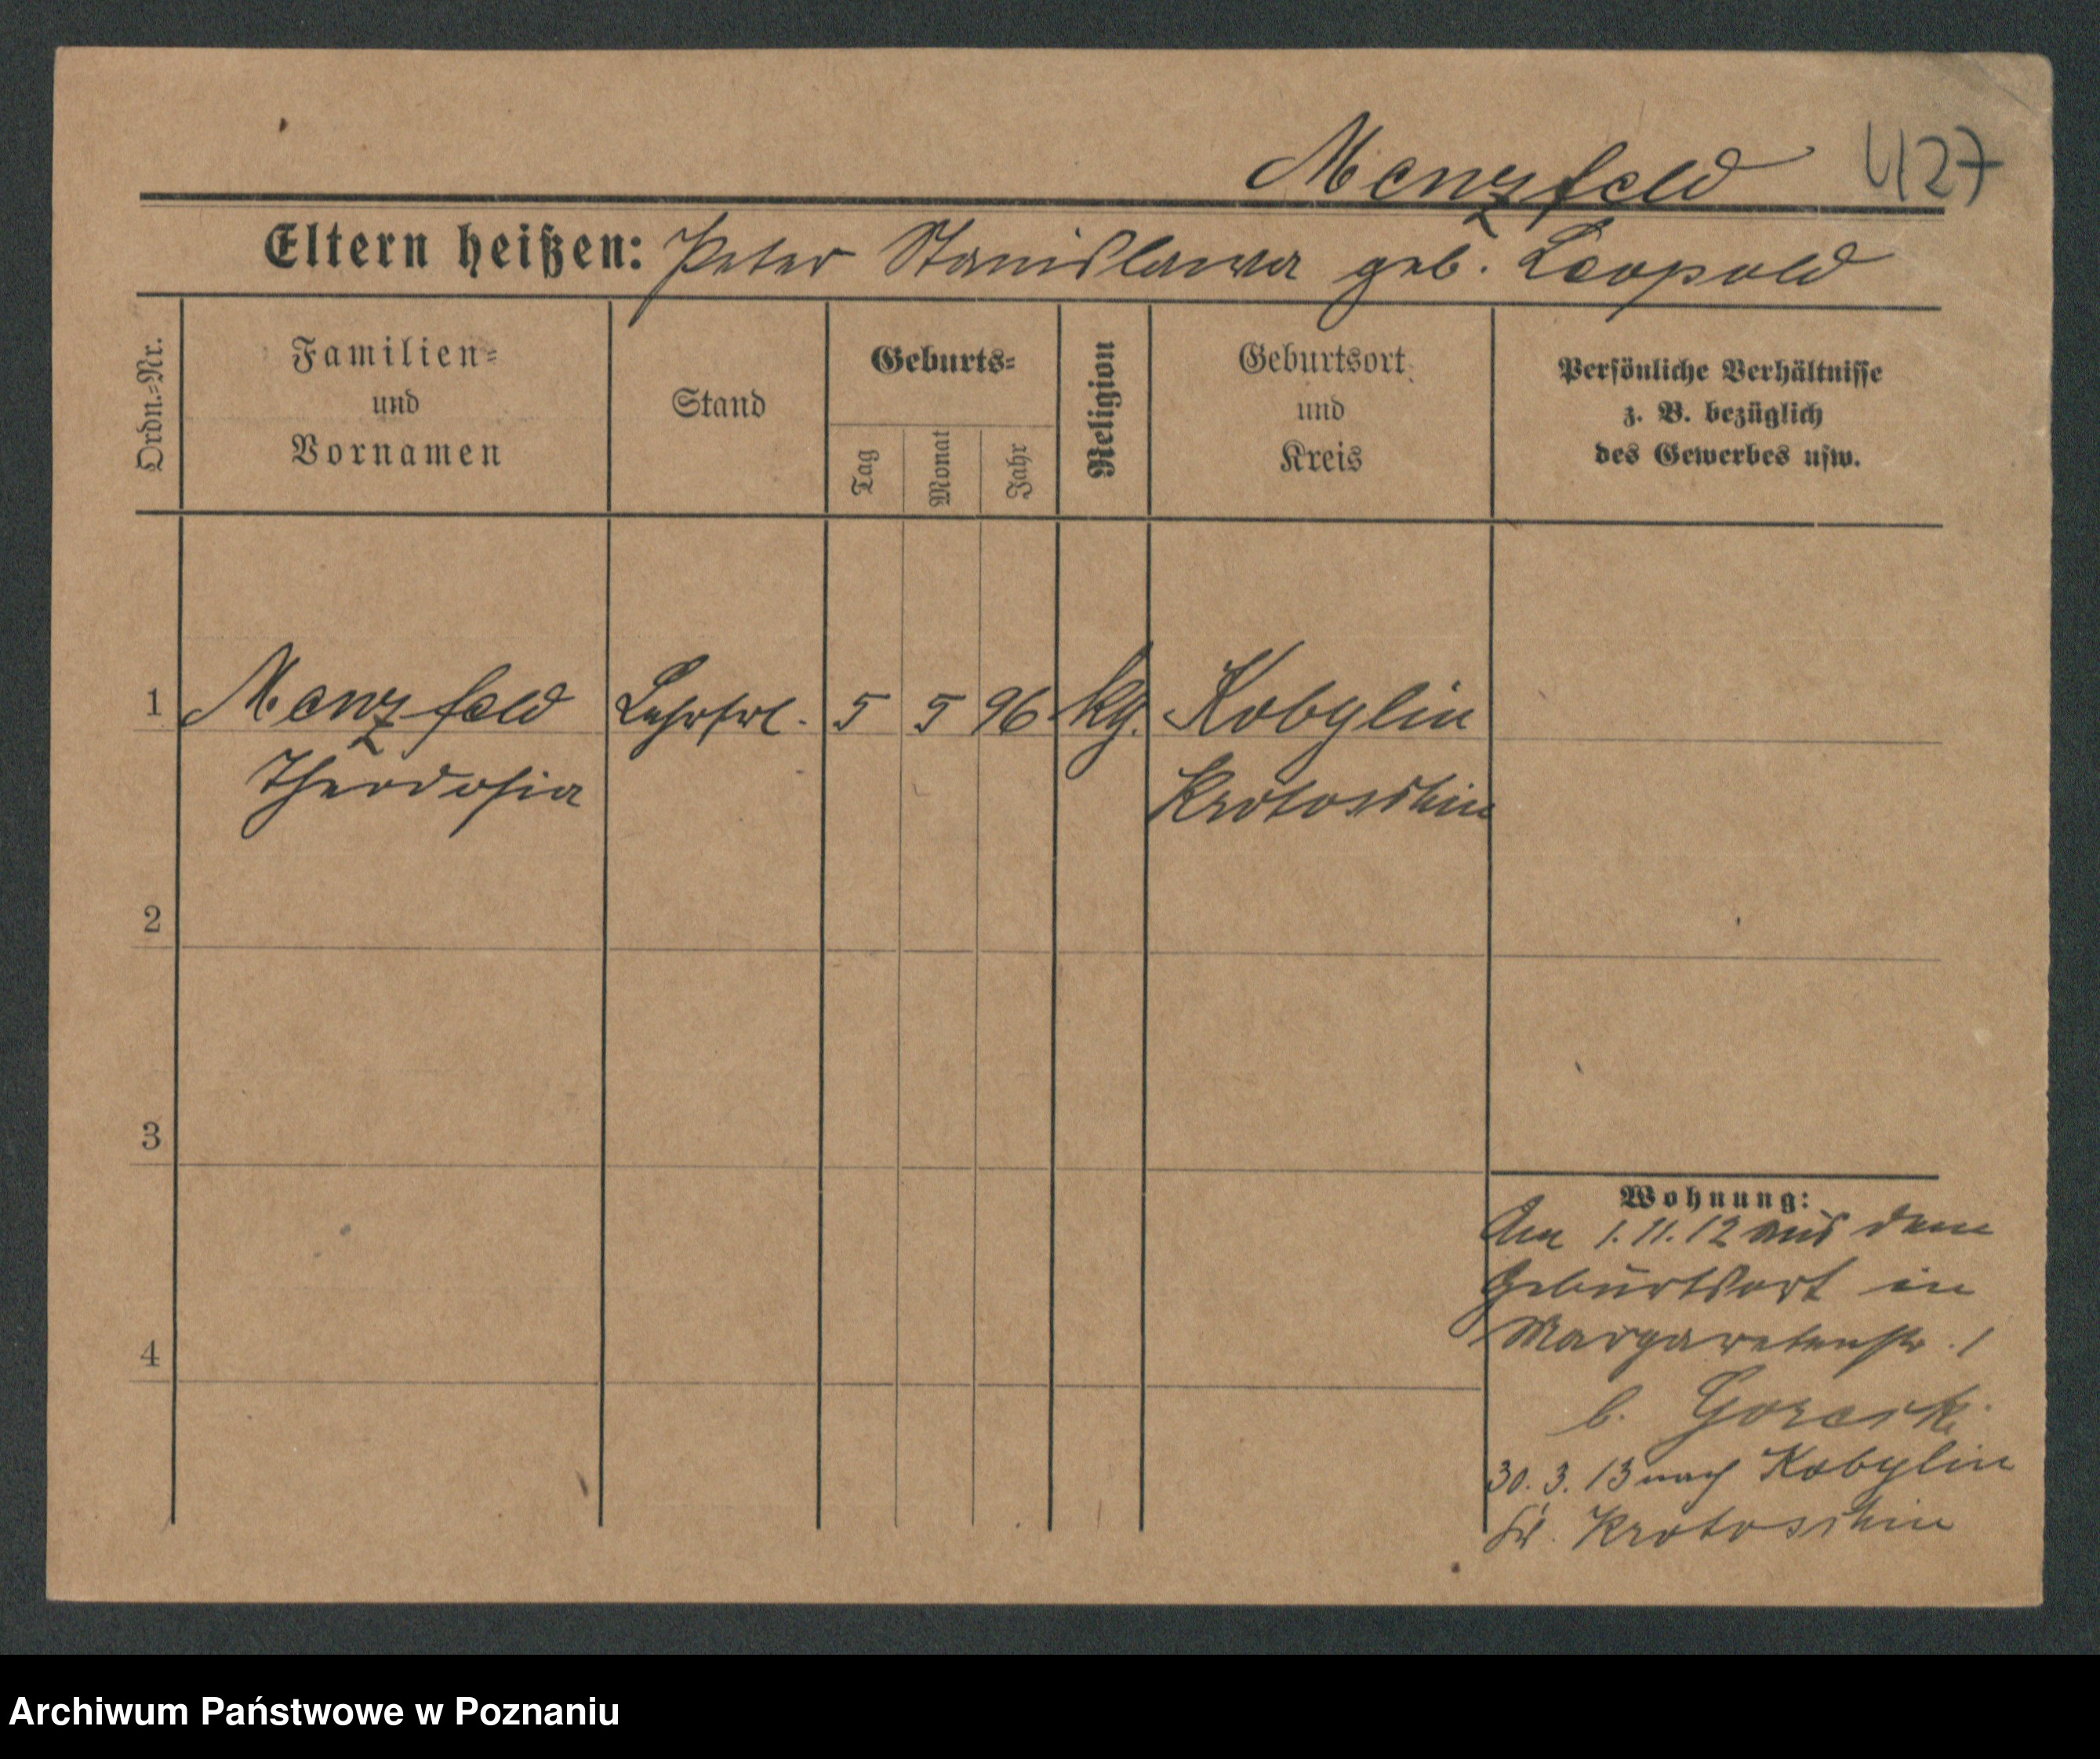 Menzfeld 427
Eltern heißen: Peter Stanislawa geb. Leopold
Ordn.=Nr.
Familien=
und
Vornamen
Stand
Geburts=
Tag
Monat
Jahr
Religion
Geburtsort
und
Kreis
Persönliche Verhältnisse
z. B. bezüglich
des Gewerbes usw.
1 Menzfeld Lehrfrl. 5 5 96 kg. Kobylin
Theodosia Krotoschin
2
3
4
Wohnung:
Am 1.11.12 aus dem
Geburtsort in
Margaretenstr. 1
b. Gorcski
30. 3. 13 nach Kobylin
Kr. Krotoschin
Archiwum Państwowe w Poznaniu